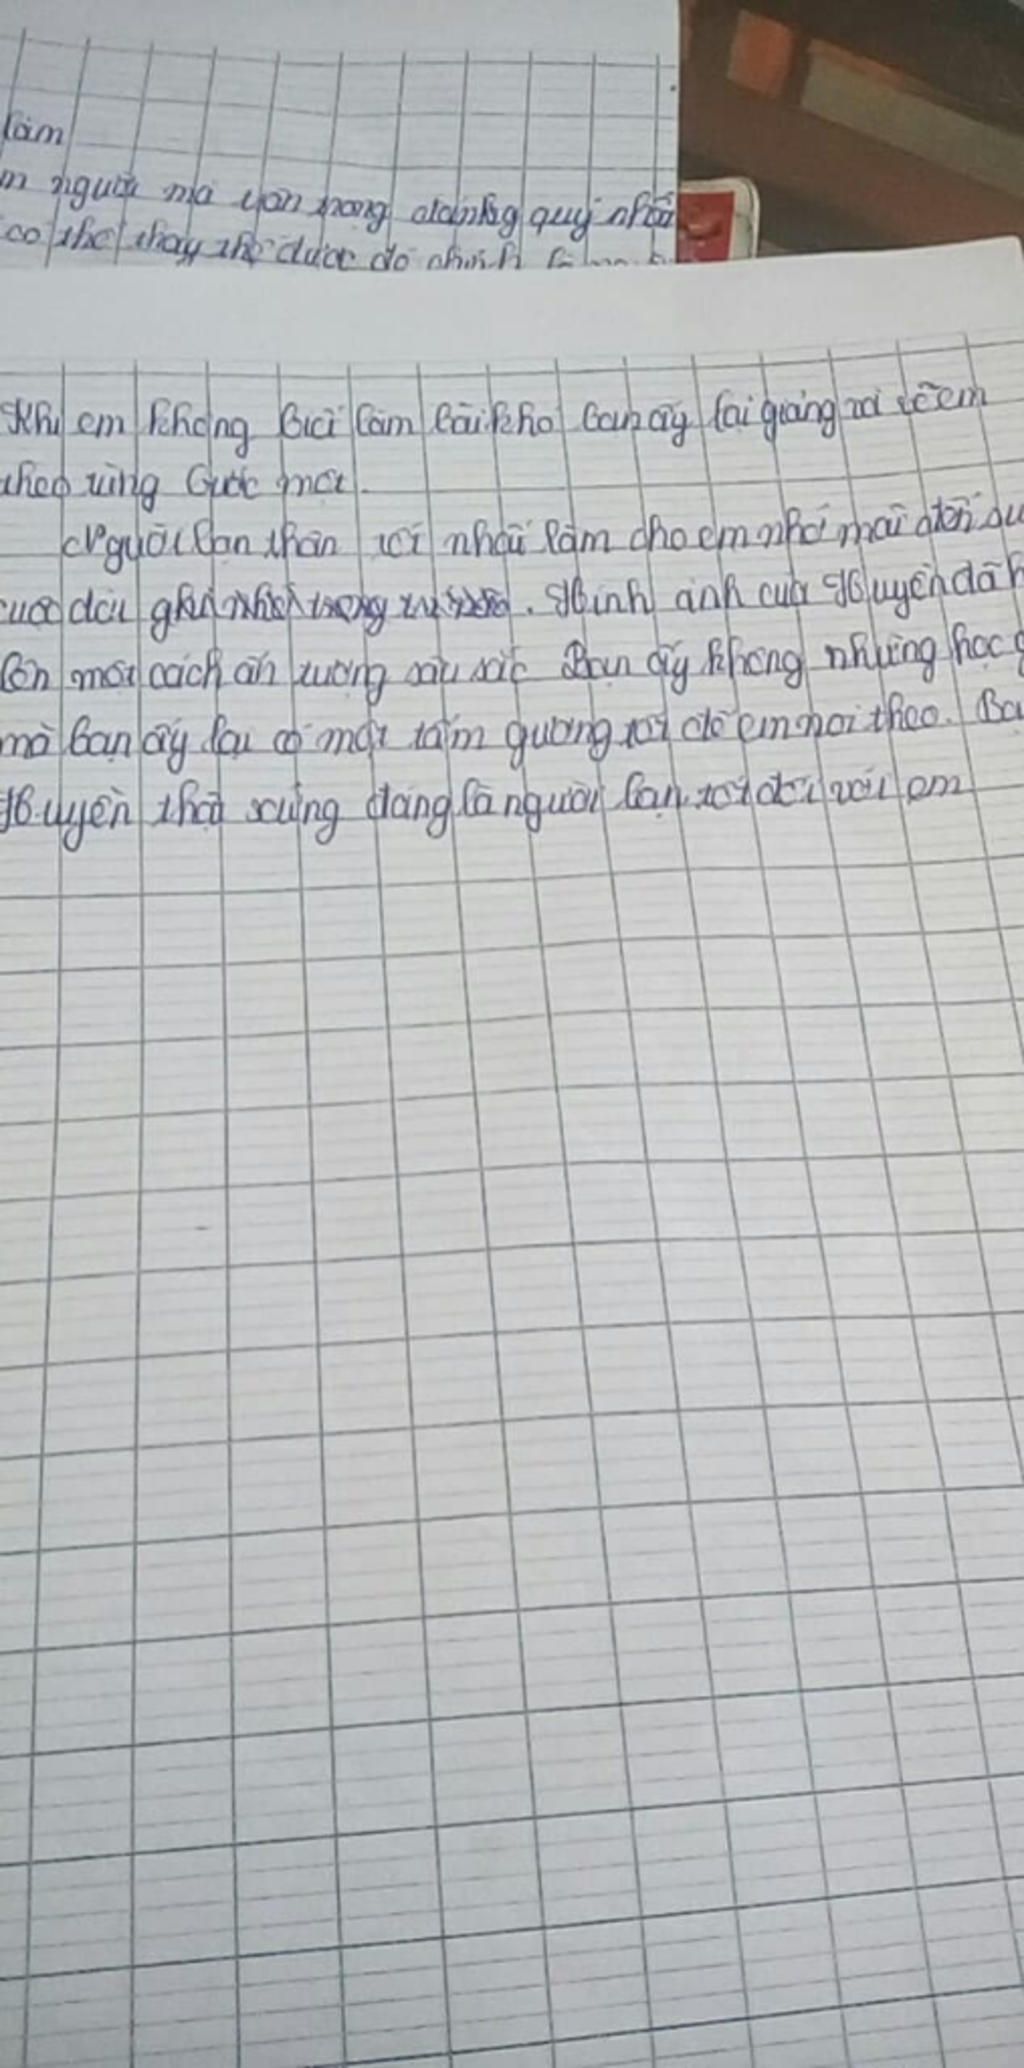 làm
người mà
có thể thay thế được đó chính
Khi em không biết làm bài khó bạn ấy lại giảng
theo từng bước một.
Người bạn thân tốt nhất làm cho em nhớ mãi đến
ghi nhớ trong. Hình ảnh của Huyền đã
lên một cách ấn tượng sâu sắc Bạn ấy không những học
mà bạn ấy lại có một tấm gương tốt để em noi theo. Bạ
Huyền thật xứng đáng là người bạn tốt đối với em